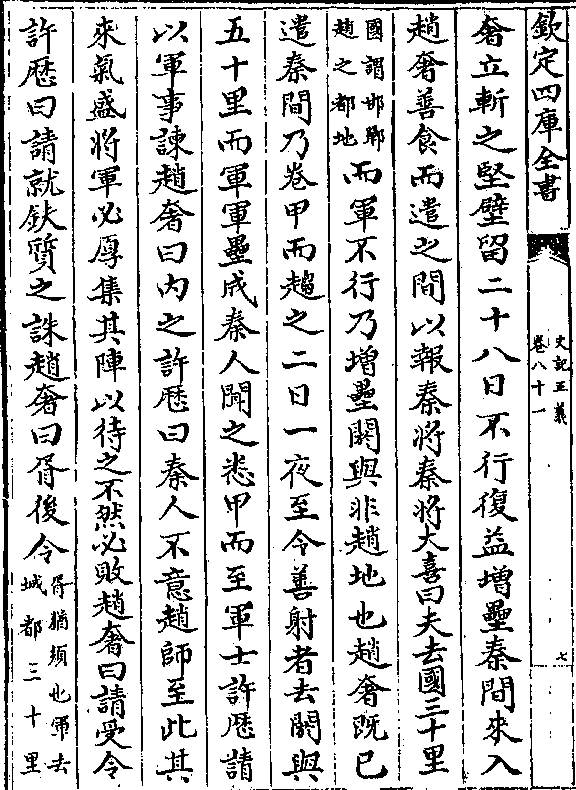 欽定四庫全書
史記正義
卷八十一
七
奢立斬之堅壁留二十八日不行復益增壘秦間來入
趙奢善食而遣之間以報秦將秦將大喜曰夫去國三十里
國謂邯鄲
趙之都地
而軍不行乃增壘閼與非趙地也趙奢既已
遣秦間乃卷甲而趨之二日一夜至令善射者去閼與
五十里而軍軍壘成秦人聞之悉甲而至軍士許歴請
以軍事諫趙奢曰内之許歴曰秦人不意趙師至此其
來氣盛將軍必厚集其陣以待之不然必敗趙奢曰請受令
許歴曰請就鈇質之誅趙奢曰胥後令
胥猶須也軍去
城都三十里